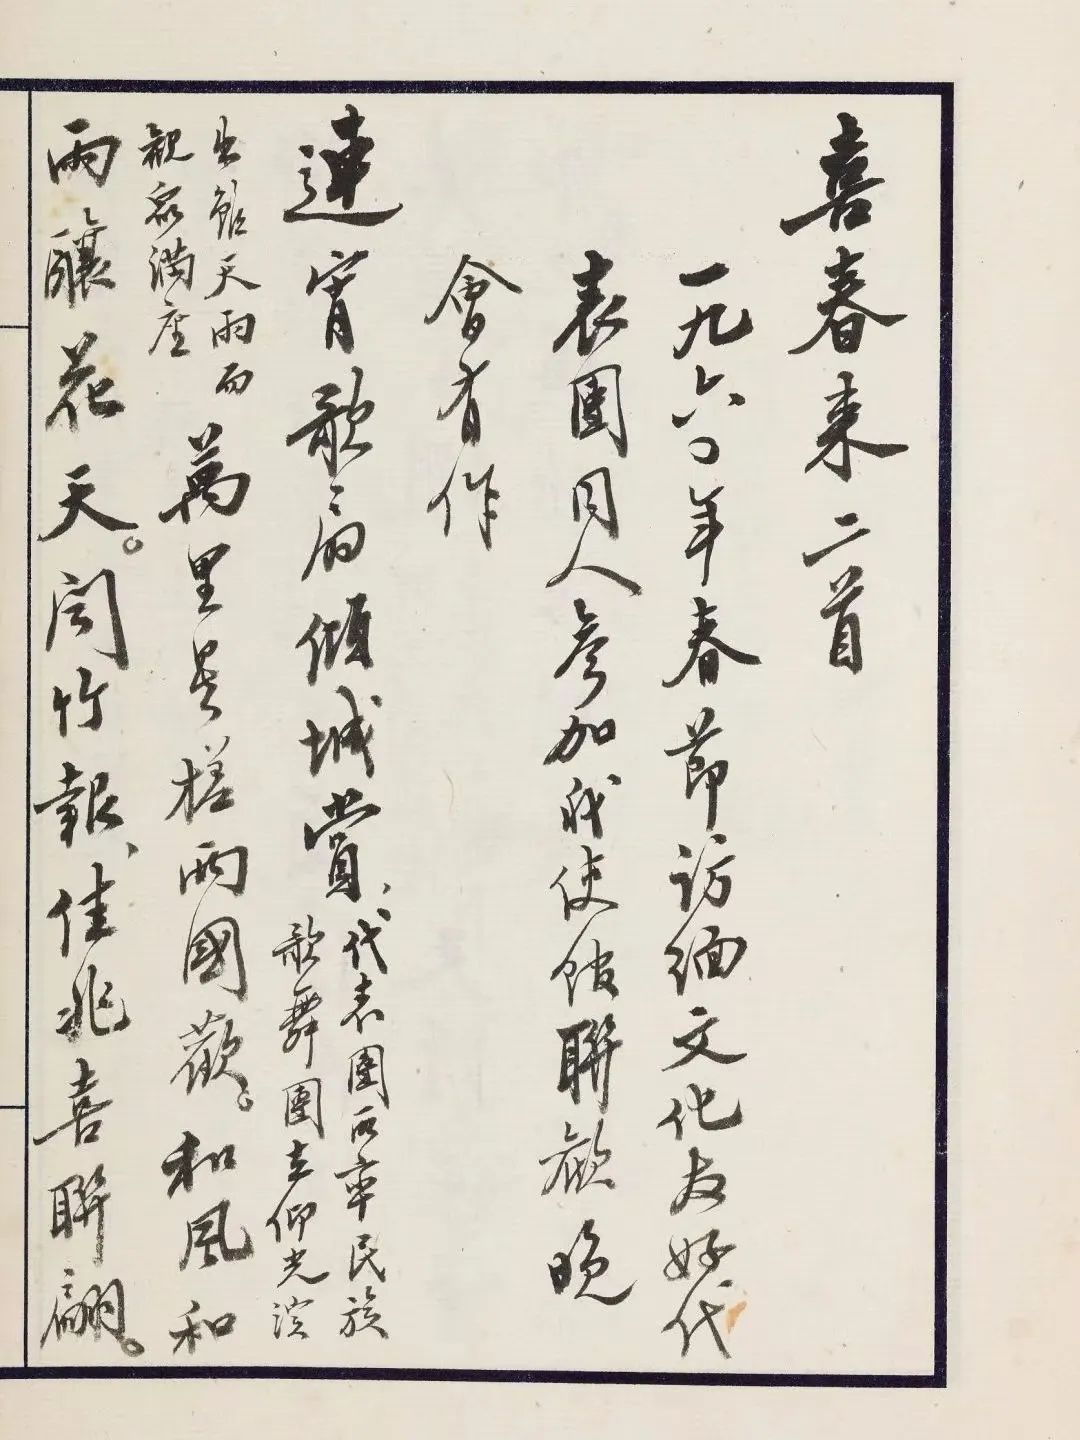 喜春来二首
一九六〇年春節訪緬文化友好代
表團同人參加我使館聯歡晚
會有作
連宵歌扇傾城賞、
代表團所率民族
歌舞團在仰光演
出雖天雨而
觀眾滿座
萬里星槎兩國歡。和風和
雨釀花天。聞竹報、佳兆喜聯翩。